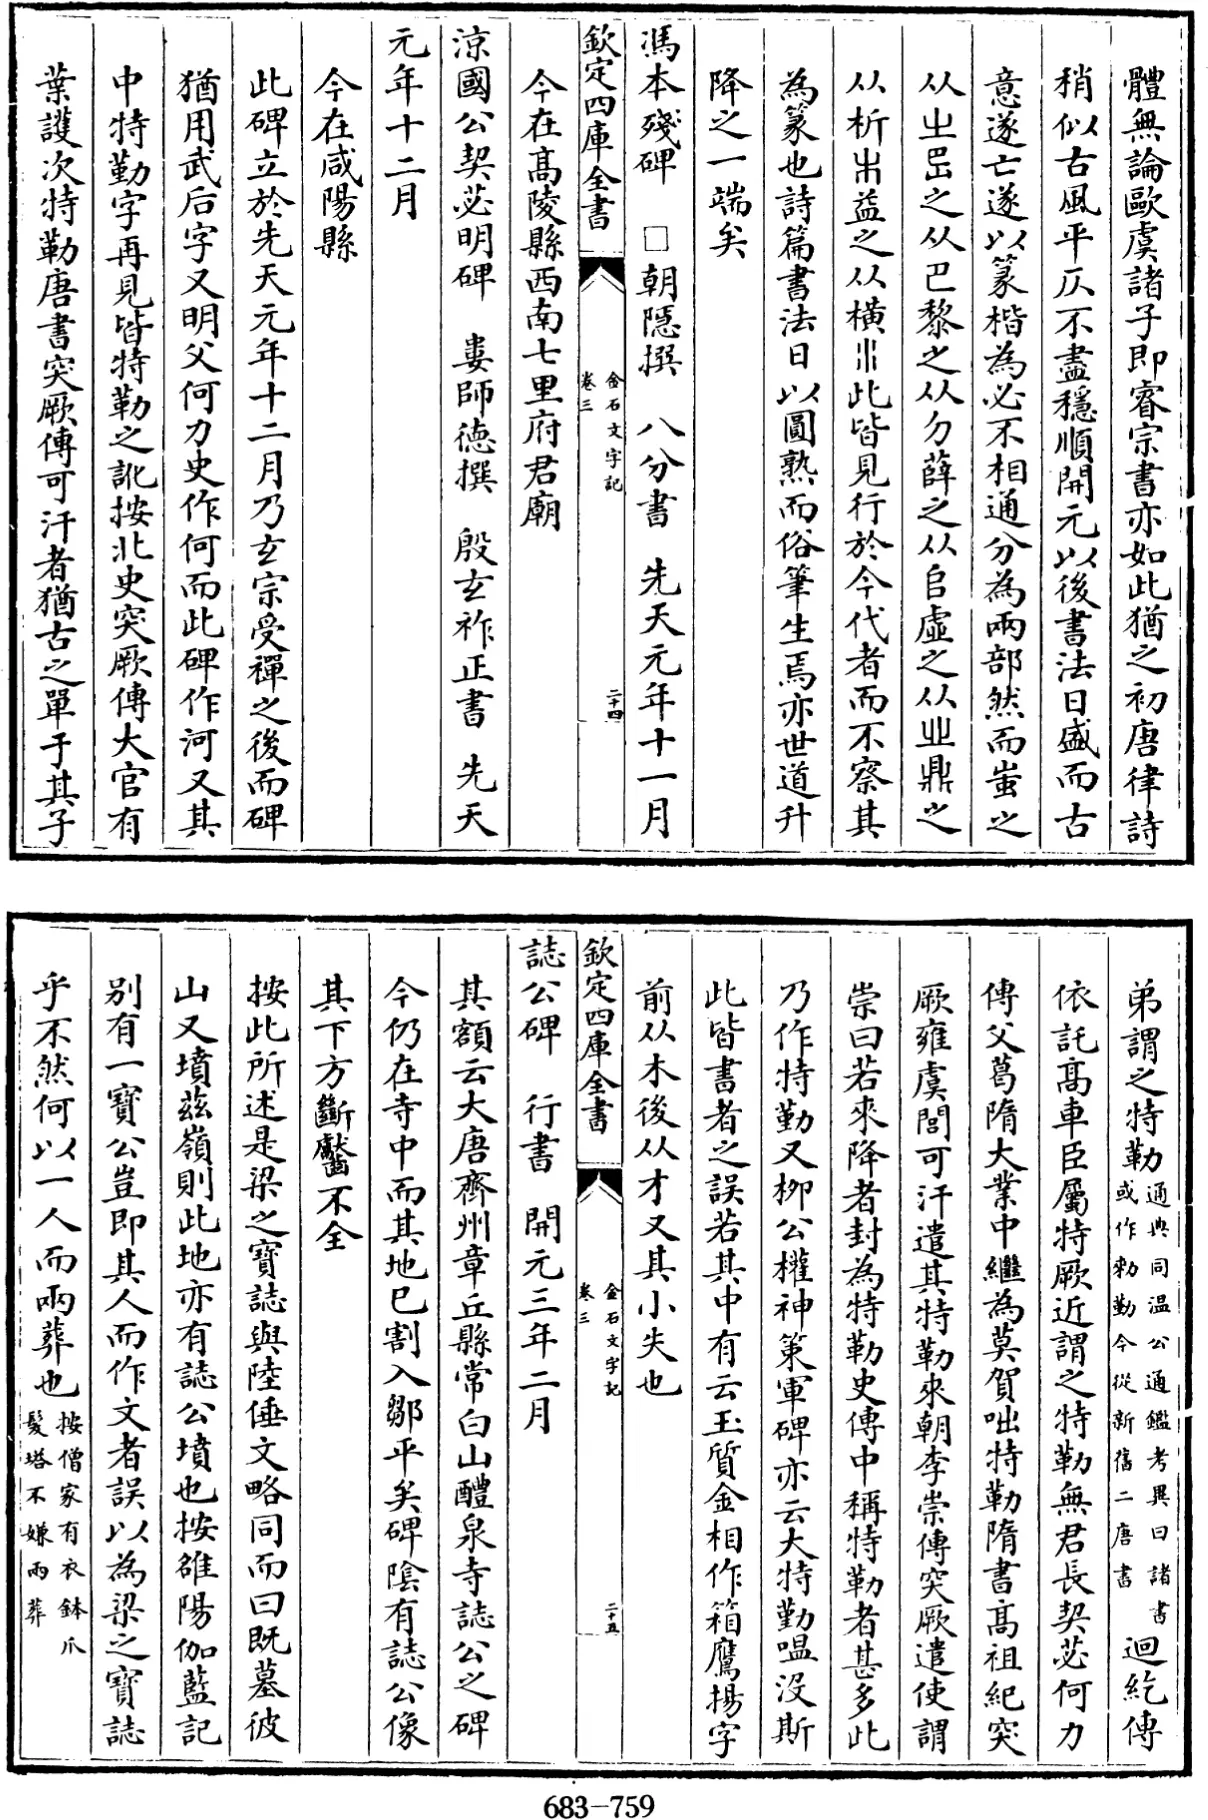 體無論歐虞諸子即睿宗書亦如此猶之初唐律詩
稍似古風平仄不盡穩順開元以後書法日盛而古
意遂亡遂以篆楷為必不相通分為兩部然而蚩之
从㞢岊之从巴黎之从勿薛之从㠯虛之从业鼎之
从析出益之从橫水此皆見行於今代者而不察其
為篆也詩篇書法日以圓熟而俗筆生焉亦世道升
降之一端矣
馮本殘碑 □朝隱撰 八分書 先天元年十一月
欽定四庫全書
金石文字記
卷三
二十四
今在高陵縣西南七里府君廟
涼國公契苾明碑 婁師德撰 殷玄祚正書 先天
元年十二月
今在咸陽縣
此碑立於先天元年十二月乃玄宗受禪之後而碑
猶用武后字又明父何力史作何而此碑作河又其
中特勤字再見皆特勒之訛按北史突厥傳大官有
葉護次特勒唐書突厥傳可汗者猶古之單于其子
弟謂之特勒通典同温公通鑑考異曰諸書
或作勑勤今從新舊二唐書
迴紇傳
依託高車臣屬特厥近謂之特勒無君長契苾何力
傳父葛隋大業中繼為莫賀咄特勒隋書高祖紀突
厥雍虞閭可汗遣其特勒來朝李崇傳突厥遣使謂
崇曰若來降者封為特勒史傳中稱特勒者甚多此
乃作特勤又柳公權神策軍碑亦云大特勤嗢沒斯
此皆書者之誤若其中有云玉質金相作箱鷹揚字
前从木後从才又其小失也
欽定四庫全書
金石文字記
卷三
二十五
誌公碑 行書 開元三年二月
其額云大唐齊州章丘縣常白山醴泉寺誌公之碑
今仍在寺中而其地已割入鄒平矣碑陰有誌公像
其下方斷齾不全
按此所述是梁之寶誌與陸倕文略同而曰既墓彼
山又墳茲嶺則此地亦有誌公墳也按雒陽伽藍記
别有一寶公豈即其人而作文者誤以為梁之寶誌
乎不然何以一人而兩葬也按僧家有衣鉢爪
髮塔不嫌兩葬
683-759